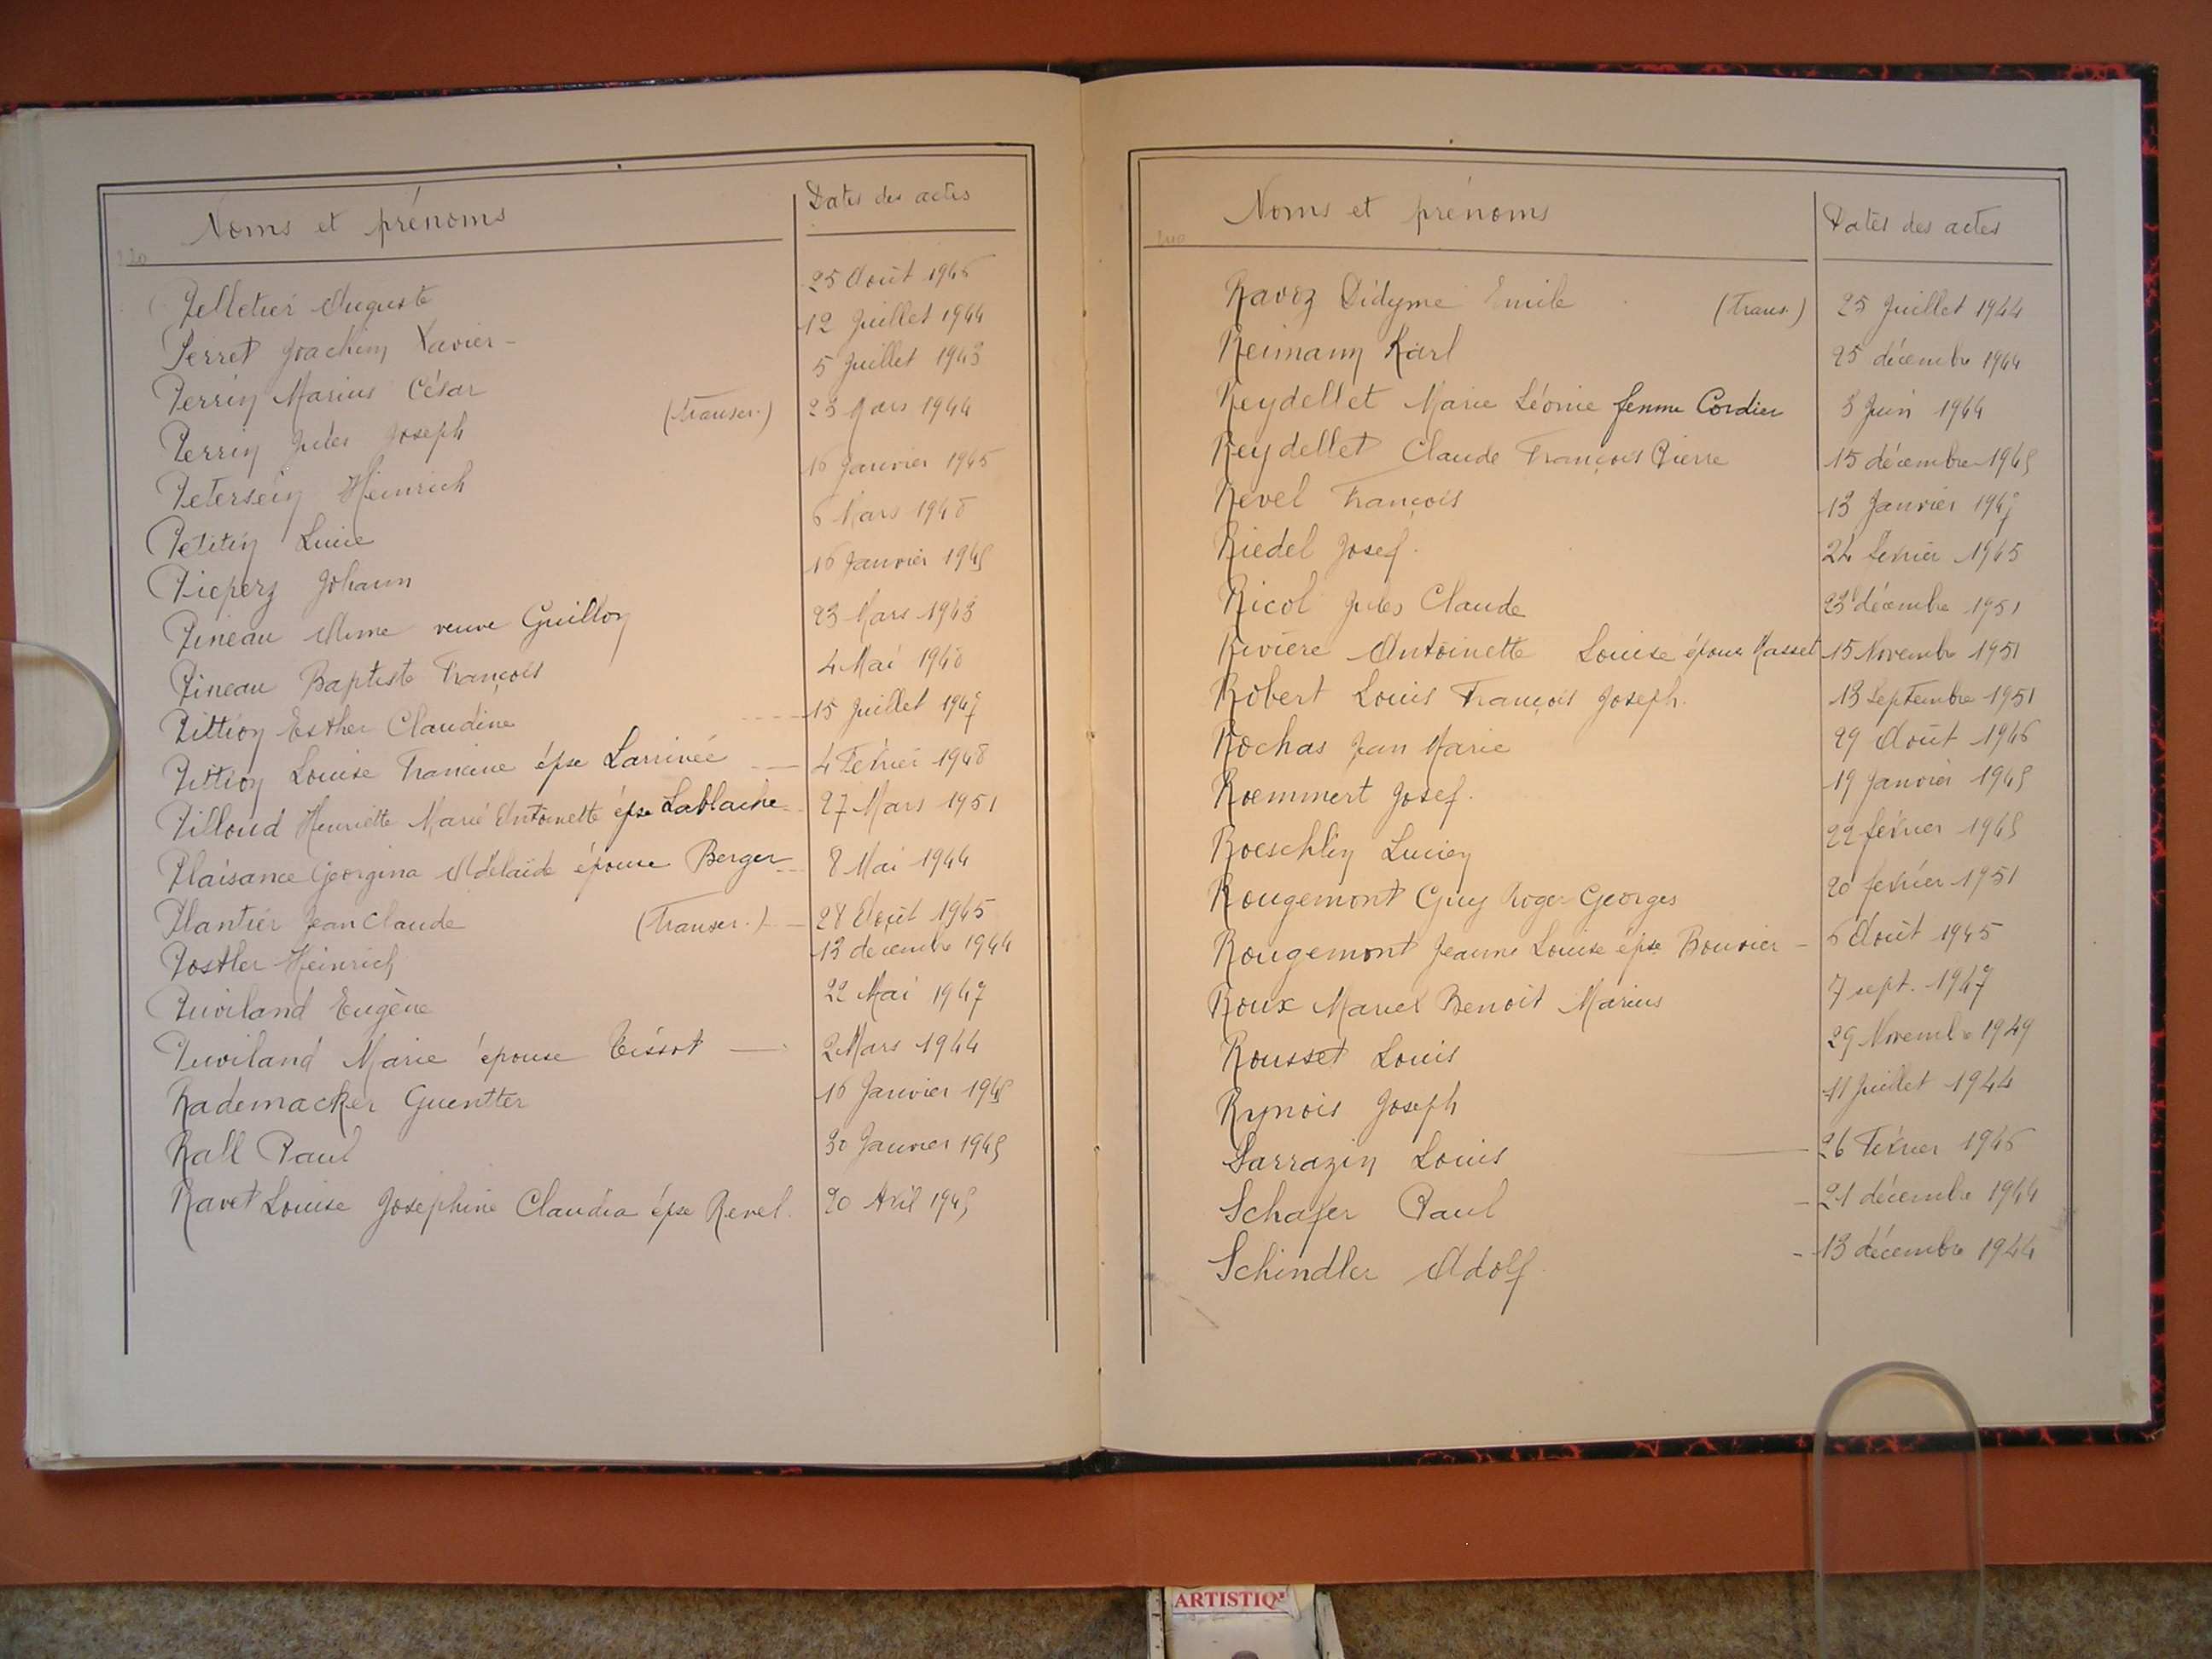 Noms et prénoms Dates des actes
Pelletier Auguste 25 Août 1946
Perret Joachim Xavier - 12 Juillet 1944
Perrin Marius César 5 Juillet 1943
Perrin Jules Joseph (Transcr.) 23 Mars 1944
Petersein Heinrich 16 Janvier 1945
Petitin Lucie 6 Mars 1948
Pieperz Johann 16 Janvier 1945
Pineau Mime veuve Guillon 23 Mars 1943
Pineau Baptiste François 4 Mai 1948
Pittion Esther Claudine 15 Juillet 1947
Pittion Louise Francine épse Larrivée 4 Février 1948
Pilloud Henriette Marie Antoinette épse Lablache 27 Mars 1951
Plaisance Georgina Adélaïde épouse Berger 8 Mai 1944
Plantier Jean Claude (Transcr.) 28 Août 1945
Postler Heinrich 13 décembre 1944
Puviland Eugène 22 Mai 1947
Puviland Marie épouse Tissot 2 Mars 1944
Rademacker Guentter 16 Janvier 1945
Rall Paul 30 Janvier 1945
Ravet Louise Josephine Claudia épse Revel. 20 Avril 1945
Noms et prénoms Dates des actes
Ravoz Didyme Emile (Trans.) 25 Juillet 1944
Reimann Karl 25 décembre 1944
Reydellet Marie Léonie femme Cordier 3 Juin 1944
Reydellet Claude François Pierre 15 décembre 1945
Revel François 13 Janvier 1947
Riedel Josef. 24 février 1945
Ricol Jules Claude 23 décembre 1951
Rivière Antoinette Louise épouse Masset 15 Novembre 1951
Robert Louis François Joseph. 13 Septembre 1951
Rochas Jean Marie 29 Août 1946
Roemmert Josef. 19 Janvier 1945
Roeschlin Lucien 22 février 1945
Rougemont Guy Roger Georges 20 février 1951
Rougemont Jeanne Louise épse Bouvier - 6 Août 1945
Roux Marcel Benoit Marius 7 sept. 1947
Rousset Louis 29 Novembre 1949
Rynois Joseph 11 Juillet 1944
Sarrazin Louis 26 Février 1946
Schafer Paul - 21 décembre 1944
Schindler Adolf - 13 décembre 1944
ARTISTIQ